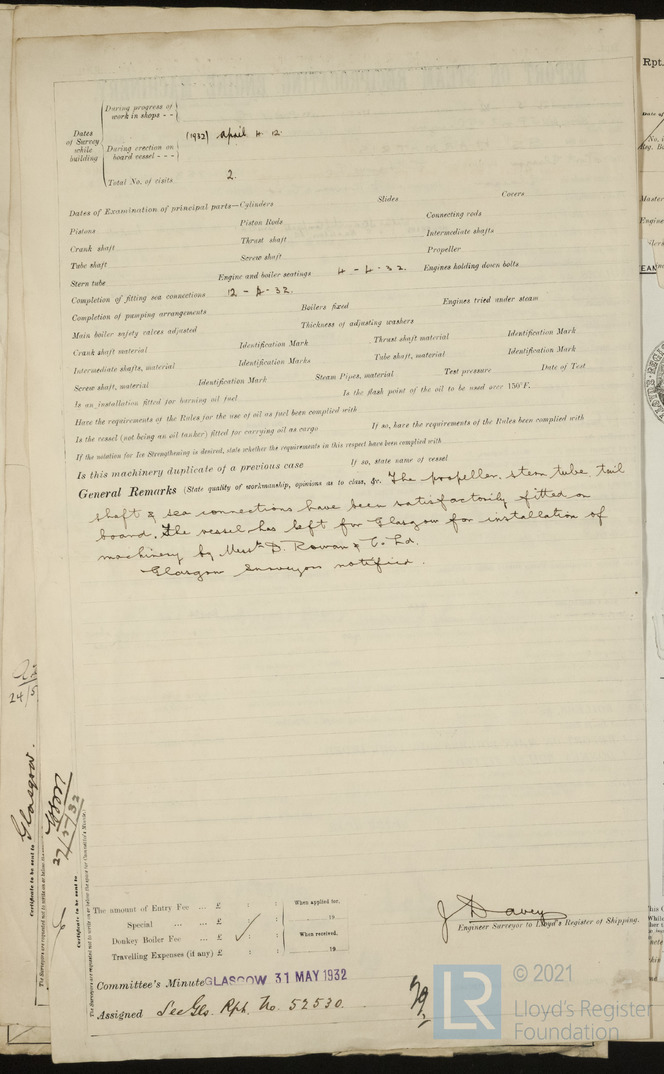 During progress of work in shops - -
Dates of Survey while building
(1932) April 4. 12.
During erection on board vessel - - -
Total No. of visits 2.
Dates of Examination of principal parts—Cylinders Slides Covers
Pistons Piston Rods Connecting rods
Crank shaft Thrust shaft Intermediate shafts
Tube shaft Screw shaft Propeller
Stern tube Engine and boiler seatings 4 - 4 - 32. Engines holding down bolts
Completion of fitting sea connections 12 - 4 - 32.
Completion of pumping arrangements Boilers fixed Engines tried under steam
Main boiler safety valves adjusted Thickness of adjusting washers
Crank shaft material Identification Mark Thrust shaft material Identification Mark
Intermediate shafts, material Identification Marks Tube shaft, material Identification Mark
Screw shaft, material Identification Mark Steam Pipes, material Test pressure Date of Test
Is an installation fitted for burning oil fuel Is the flash point of the oil to be used over 150°F.
Have the requirements of the Rules for the use of oil as fuel been complied with
Is the vessel (not being an oil tanker) fitted for carrying oil as cargo If so, have the requirements of the Rules been complied with
If the notation for Ice Strengthening is desired, state whether the requirements in this respect have been complied with
Is this machinery duplicate of a previous case If so, state name of vessel
General Remarks (State quality of workmanship, opinions as to class, &c. The propeller, stern tube, tail
shaft & sea connections have been satisfactorily fitted on
board. The vessel has left for Glasgow for installation of
machinery by Messrs D. Rowan & Co. Ld.
Glasgow Surveyors notified.
Glasgow.
Certificate to be sent to
27/5/32
Certificate to be sent to
24/5
The amount of Entry Fee ... £ : : When applied for,
Special ... ... £ : : 19
Donkey Boiler Fee ... £ : : When received,
Travelling Expenses (if any) £ : : 19
J Davey
Engineer Surveyor to Lloyd's Register of Shipping.
Committee's Minute GLASGOW 31 MAY 1932
Assigned See Gls. Rpt. No. 52530.
LR
© 2021
Lloyd's Register
Foundation
Rpt.
Master
Engine